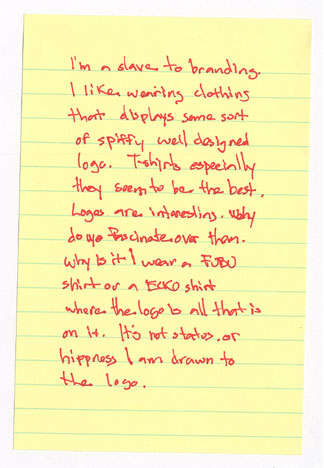 I'm a slave to branding.
I like wearing clothing
that displays some sort
of spiffy well designed
logo. T-shirts especially
they seem to be the best.
Logos are interesting. Why
do we fascinate over them.
Why is it I wear a FUBU
shirt or a ECKO shirt
where the logo is all that is
on it. It's not status, or
hippness I am drawn to
the logo.